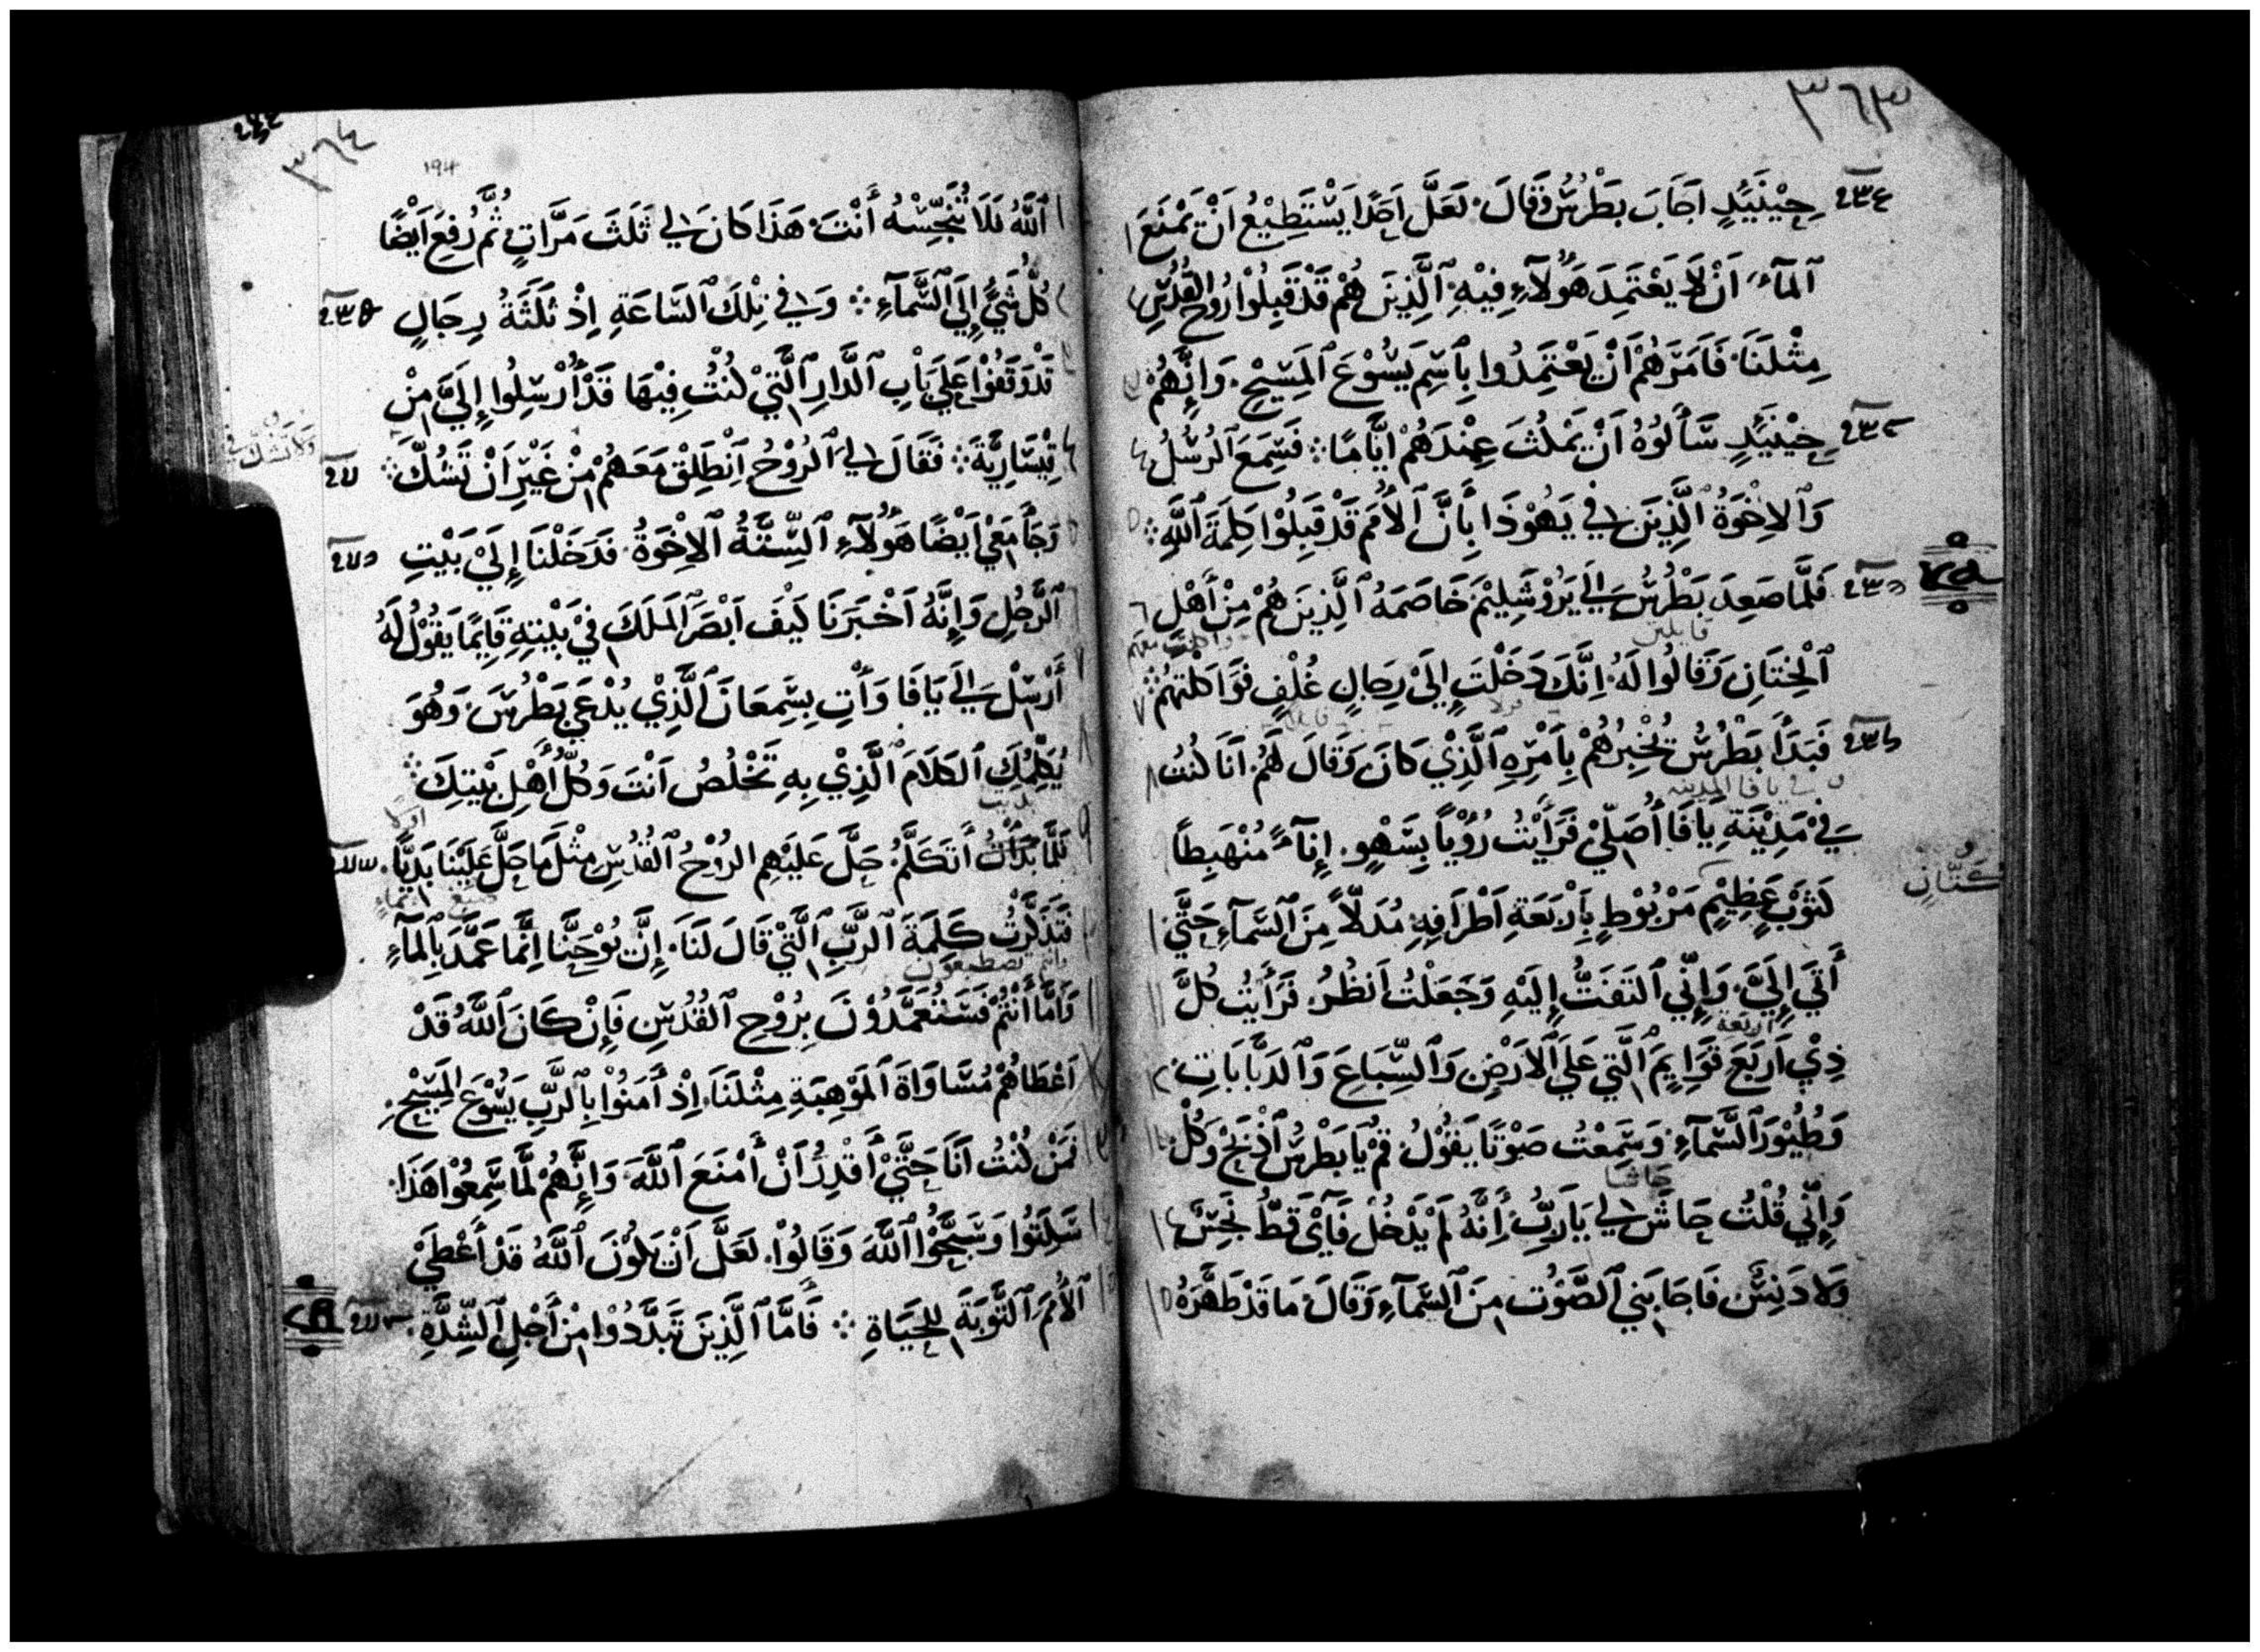 ٣٦٣
حِيْنَئِدٍ اجَابَ بَطْرُسُ وَقَالَ لَعَلَّ احَدًا يَسْتَطِيْعُ انْ يَمْنَعَ
ٱلمآءَ انْ لَا يَعْتَمِدَ هَوُلَآءِ فِيْهِ ٱلَّذِينَ هُمْ قَدْ قَبِلُوا رُوحَ القُدُسِ
مِثْلَنَا فَامَرَهُمْ اَنْ يَعْتَمِدُوا بِٱسْمِ يَسُوْعَ ٱلمَسِيْحِ وَإِنَّهُمْ
حِيْنَئِدٍ سَأَلُوْهُ اَنْ يَمْكُثَ عِنْدَهُمْ ايَّامًا ܀ فَسَمِعَ ٱلرُسُلُ
وَٱلاِخْوَةُ ٱلَّذِينَ فِي يَهُوْذَا بِأَنَّ ٱلأُمَمَ قَدْ قَبِلُوْا كَلِمَةَ ٱللَّهِ ܀
فَلَمَّا صَعِدَ بَطْرُسُ إِلَى يَرُوْشَلِيْمَ خَاصَمَهُ ٱلَّذِينَ هُمْ مِنْ أَهْلِ
قايلين
ٱلْخِتَانِ وَقَالُوا لَهُ اِنَّكَ دَخَلْتَ إِلَىْ رِجَالٍ غُلْفٍ فَوَاكَلْتَهُمْ ܀
فَبَدَأَ بَطْرُسُ يُخْبِرُهُمْ بِأَمْرِهِ ٱلَّذِيْ كَانَ وَقَالَ لَهُمْ أَنَا كُنْتُ
في يافا المدينه
فِيْ مَدِيْنَةِ يَافَا أُصَلِّيْ فَرَأَيْتُ رُؤْيَاً بِسَهْوٍ إِنَآءً مُنْهَبِطًا
كتّانٍ
كَثَوْبٍ عَظِيْمٍ مَرْبُوْطٍ بِأَرْبَعَةِ اَطْرَافِهِ مُدَلّاً مِنَ ٱلسَّمآءِ حَتَّي
أَتَي إِلَيَّ وَإِنِّي ٱلتَفَتُّ إِلَيْهِ وَجَعَلْتُ اَنظُرُ فَرَأَيْتُ كُلَّ
اربعة
ذِيْ اَرْبَعَ قَوَايِمَ ٱلَّتِي عَلَي ٱلأَرْضِ وَٱلسِّبَاعَ وَٱلدَبَّابَاتِ
وَطُيُوْرَ ٱلسَّمآءِ وَسَمِعْتُ صَوْتًا يَقُوْلُ قُمْ يَا بَطْرُسُ ٱذْبَحْ وَكُلْ
حاشا
وَإِنِّي قُلْتُ حَاشَ لِي يَا رَبُّ أَنَّهُ لَمْ يَدْخُلْ فَايَ قَطُّ نَجِسٌ
وَلَا دَنِسٌ فَاجَابَنِي ٱلصَّوْت مِنَ ٱلسَّمآءِ وَقَالَ مَا قَدْ طَهَّرَهُ
٣٦٤
194
ٱللَّهُ فَلَا تُنَجِّسْهُ أَنْتَ هَذَا كَانَ لِي ثَلَثَ مَرَّاتٍ ثُمَّ رُفِعَ اَيْضًا
كُلُّ شَيٍّ إِلَي ٱلسَّمآءِ ܀ وَفِي تِلْكَ ٱلسَّاعَةِ اِذْ ثَلَثَةُ رِجَالٍ
قَدْ وَقَفُوْا عَلَي بَابِ ٱلدَّارِ ٱلَّتِيْ كُنْتُ فِيْهَا قَدْ أُرْسِلُوا إِلَيَّ مِنْ
قِيْسَارِيَّةَ ܀ فَقَالَ لِي ٱلرُوْحُ ٱنْطَلِقْ مَعَهُمْ مِنْ غَيْرِ اَنْ تَشُكَّ ܀
وَجَأَ مَعِيْ اَيْضًا هَوُلَآءِ ٱلسِّتَّةُ ٱلاِخْوَةُ فَدَخَلْنَا إِلَيْ بَيْتِ
ٱلرَّجُلِ وَإِنَّهُ اَخْبَرَنَا كَيْفَ اَبْصَرَ ٱلمَلَكَ فِيْ بَيْتِهِ قَايِمًا يَقُوْلُ لَهُ
أَرْسِلْ إِلَى يَافَا وَأْتِ بِسِمْعَانَ ٱلَّذِيْ يُدْعَي بَطْرُسَ وَهُوَ
يُكَلِّمُكَ ٱلكَلَامَ ٱلَّذِيْ بِهِ تَخْلُصُ اَنْتَ وَكُلُّ أَهْلِ بَيْتِكَ ܀
اولًا
فَلَمَّا بَدَأْتُ أَتَكَلَّمُ حَلَّ عَلَيْهِم الرُوْحُ ٱلقُدُسِ مِثْلَ مَا حَلَّ عَلَيْنَا بَدِيًّا
فَتَذَكَّرْتُ كَلِمَةَ ٱلرَّبِّ ٱلَّتِيْ قَالَ لَنَا إِنَّ يُوْحَنَّا اِنَّمَا عَمَّدَ بِٱلمآءِ
وانتم تصطبغون
وَأَمَّا أَنْتُمْ فَسَتُعَمَّدُوْنَ بِرُوْحِ ٱلقُدُسِ فَإِنْ كَانَ ٱللَّهُ قَدْ
اَعْطَاهُمْ مُسَاوَاةَ ٱلمَوْهِبَةِ مِثْلَنَا إِذْ أَمَنُوْا بِٱلرَّبِّ يَسُوْعَ المَسِيْحِ
فَمَنْ كُنْتُ اَنَا حَتَّيْ أَقْدِرُ اَنْ أَمْنَعَ ٱللَّهَ وَإِنَّهُمْ لَمَّا سَمِعُوْا هَذَا
سَكَتُوا وَسَبَّحُوْا ٱللَّهَ وَقَالُوْا لَعَلَّ اَنْ يَكُوْنَ ٱللَّهُ قَدْ أَعْطَيْ
ٱلأُمَمَ ٱلتَّوْبَةَ لِلحَيَاةِ ܀ فَأَمَّا ٱلَّذِينَ تَبَدَّدُوْا مِنْ أَجْلِ ٱلشِّدَّةِ